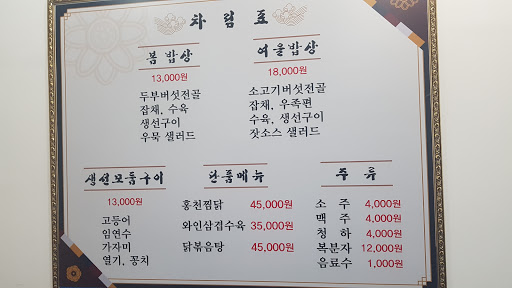 차림표
봄 밥상
13,000원
두부버섯전골
잡채, 수육
생선구이
우묵 샐러드
여울밥상
18,000원
소고기버섯전골
잡채, 우족편
수육, 생선구이
잣소스 샐러드
생선모듬구이
13,000원
고등어
임연수
가자미
열기, 꽁치
단품메뉴
홍천찜닭 45,000원
와인삼겹수육 35,000원
닭볶음탕 45,000원
주 류
소 주 4,000원
맥 주 4,000원
청 하 4,000원
복분자 12,000원
음료수 1,000원